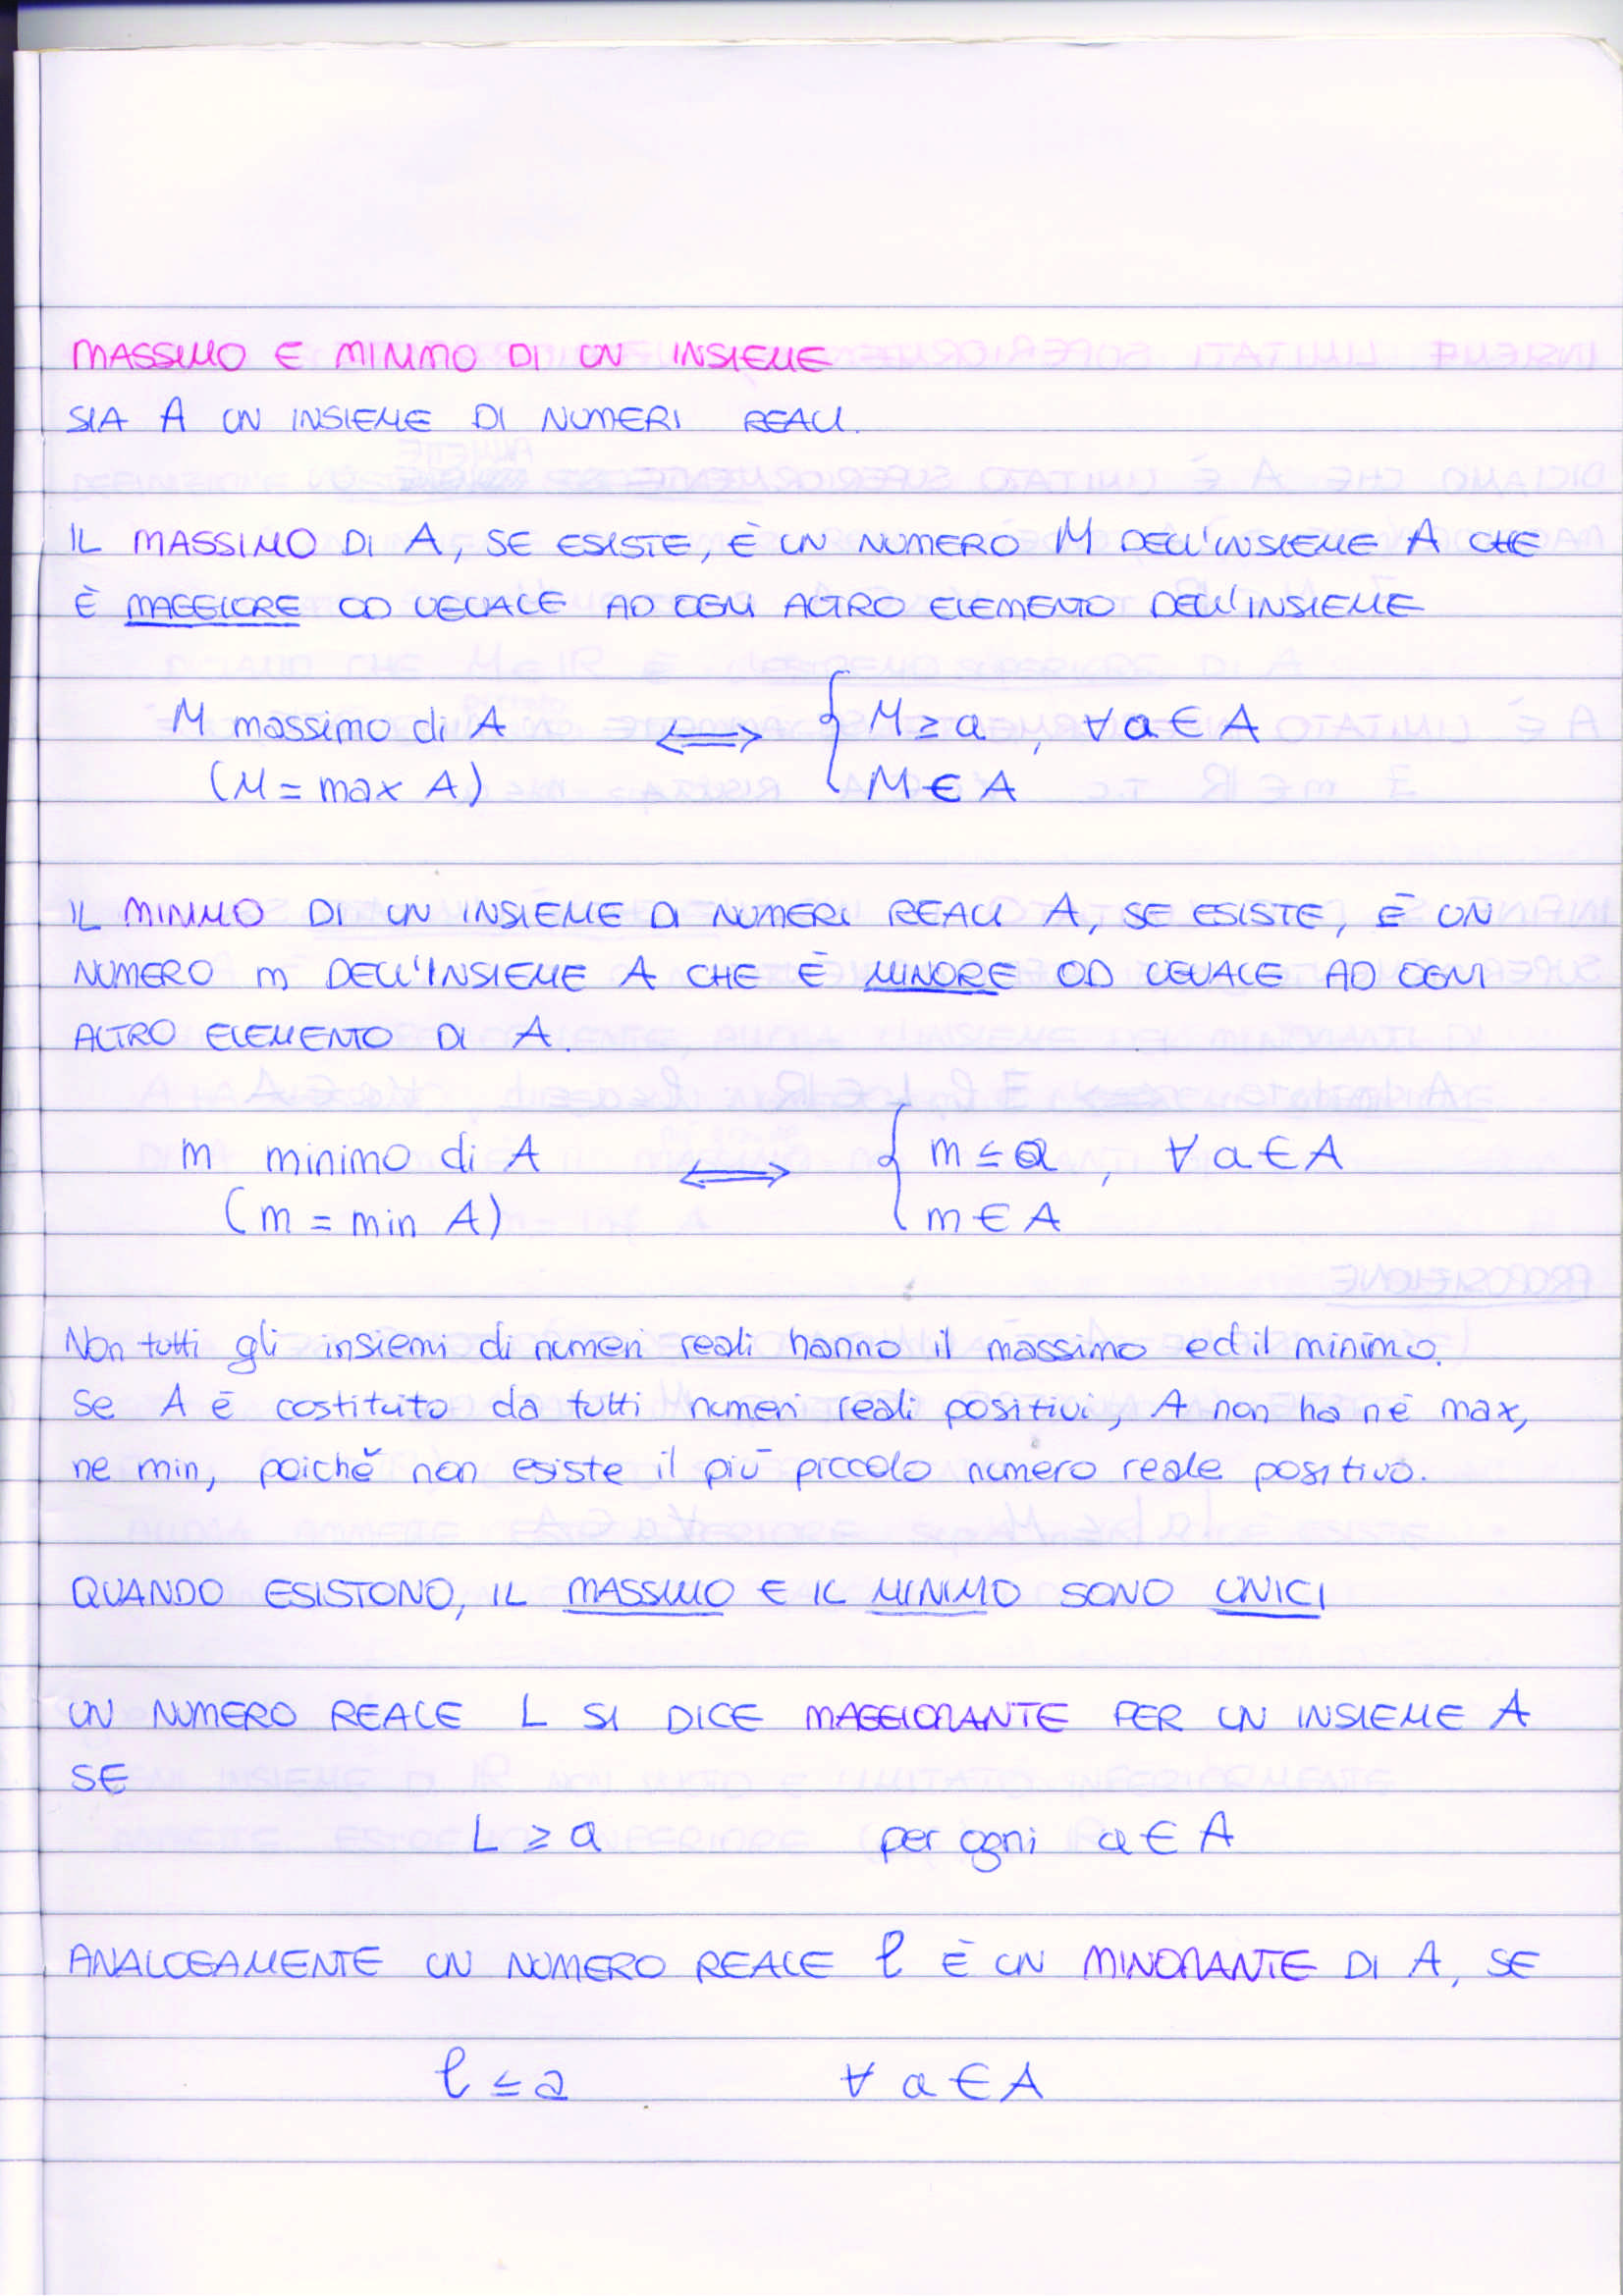 MASSIMO E MINIMO DI UN INSIEME
SIA A UN INSIEME DI NUMERI REALI.
IL MASSIMO DI A, SE ESISTE, È UN NUMERO M DELL'INSIEME A CHE
È MAGGIORE OD UGUALE AD OGNI ALTRO ELEMENTO DELL'INSIEME
M massimo di A ⟺ { M ≥ a , ∀ a ∈ A
(M = max A) M ∈ A
IL MINIMO DI UN INSIEME DI NUMERI REALI A, SE ESISTE, È UN
NUMERO m DELL'INSIEME A CHE È MINORE OD UGUALE AD OGNI
ALTRO ELEMENTO DI A.
m minimo di A ⟺ { m ≤ a , ∀ a ∈ A
(m = min A) m ∈ A
Non tutti gli insiemi di numeri reali hanno il massimo ed il minimo.
Se A è costituito da tutti numeri reali positivi, A non ha nè max,
ne min, poichè non esiste il più piccolo numero reale positivo.
QUANDO ESISTONO, IL MASSIMO E IL MINIMO SONO UNICI
UN NUMERO REALE L SI DICE MAGGIORANTE PER UN INSIEME A
SE
L ≥ a per ogni a ∈ A
ANALOGAMENTE UN NUMERO REALE ℓ È UN MINORANTE DI A, SE
ℓ ≤ a ∀ a ∈ A